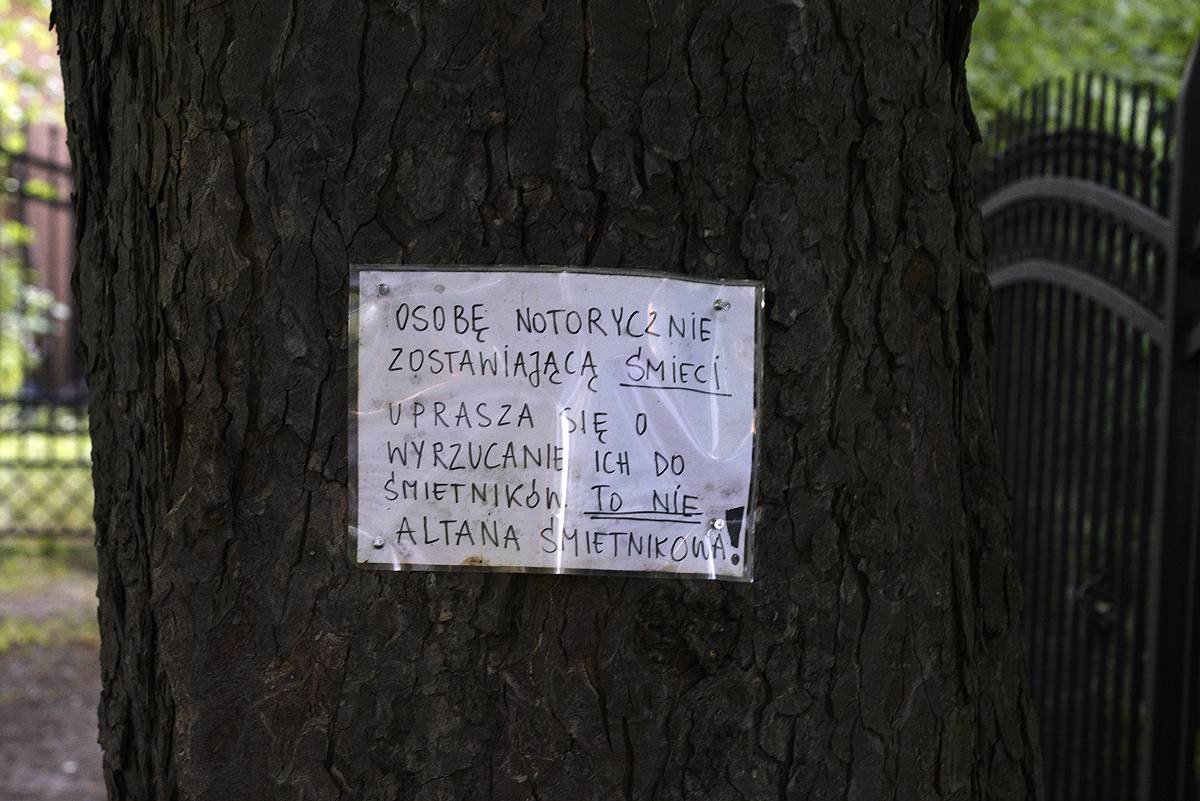 OSOBĘ NOTORYCZNIE
ZOSTAWIAJĄCĄ ŚMIECI
UPRASZA SIĘ O
WYRZUCANIE ICH DO
ŚMIETNIKÓW TO NIE
ALTANA ŚMIETNIKOWA!